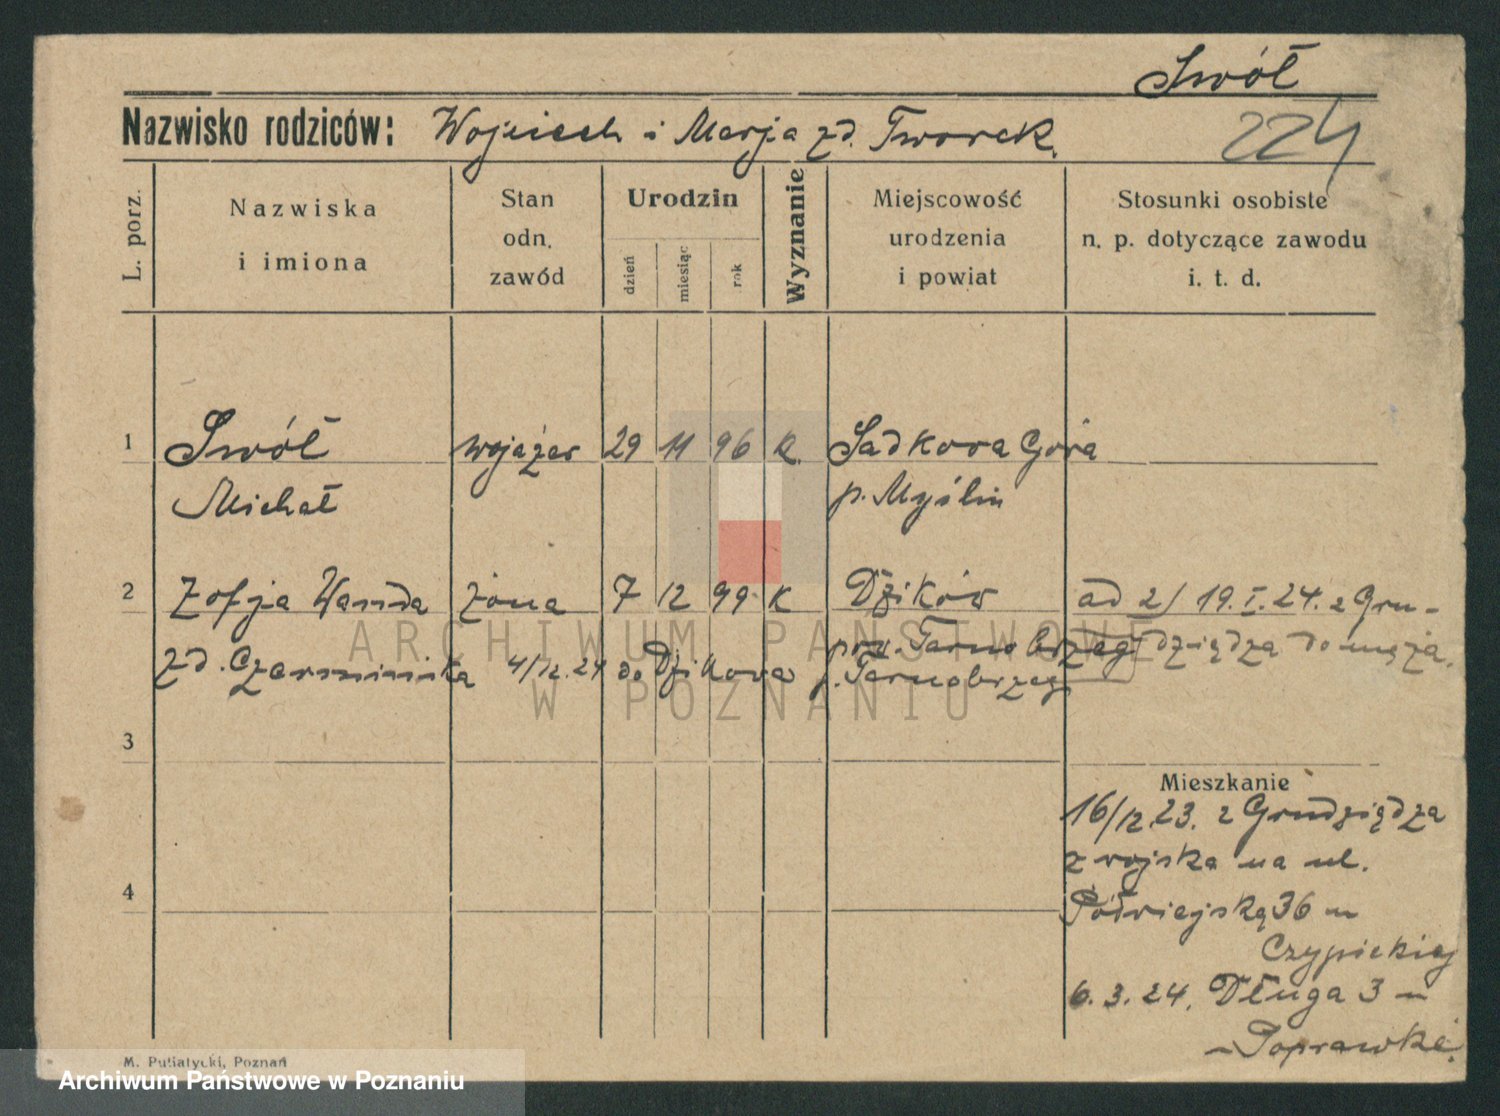 Swół
Nazwisko rodziców: Wojciech i Marja zd. Tworek.
224
L. porz.
Nazwiska
i imiona
Stan
odn.
zawód
Urodzin
dzień
miesiąc
rok
Wyznanie
Miejscowość
urodzenia
i powiat
Stosunki osobiste
n. p. dotyczące zawodu
i. t. d.
1 Swół wojażer 29 11 96 k. Sadkova Góra
Michał p. Myślin
2 Zofja Wanda żona 7 12 99 K Dzików ad 2/ 19.I.24. z Gru-
pow. Tarnobrzeg dziądza do męża.
zd. Czarmińska 4/12.24 do Dzikova p. Tarnobrzeg
3
Mieszkanie
16/12.23. z Grudziądza
z wojska na ul.
4
Półwiejską 36 u
Czypickiej
6.3.24. Długa 3 u
Poprawki.
M. Putiatycki, Poznań
ARCHIWUM PAŃSTWOWE
W POZNANIU
Archiwum Państwowe w Poznaniu